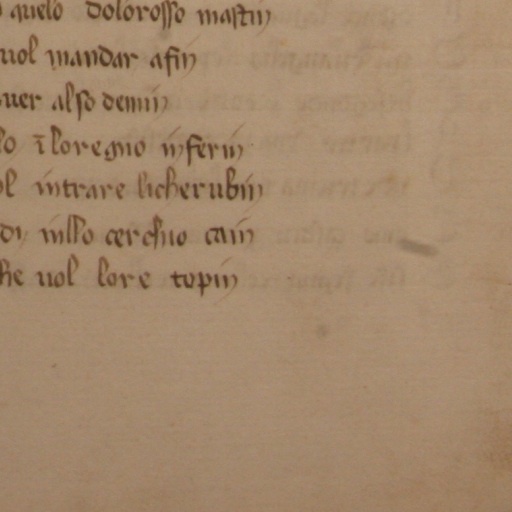 quelo dolorosso mastin
uol mandar afin
uer also demin
lo ĩ loregno inferin
ol intrare licherubin
di, nillo cerchio cain
he uol lore topin